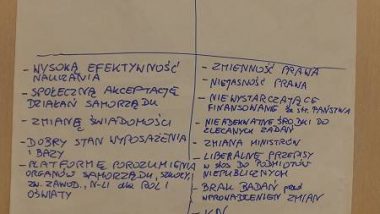 - WYSOKĄ EFEKTYWNOŚĆ
NAUCZANIA
- SPOŁECZNĄ AKCEPTACJĘ
DZIAŁAŃ SAMORZĄDU
- ZMIANĘ ŚWIADOMOŚCI
- DOBRY STAN WYPOSAŻENIA
I BAZY
- PLATFORMĘ POROZUMIENIA
ORGANÓW SAMORZĄDU, SZKOŁY,
ZW. ZAWOD., N-LI dla ROLI
OŚWIATY
- ZMIENNOŚĆ PRAWA
- NIEJASNOŚĆ PRAWA
- NIEWYSTARCZAJĄCE
FINANSOWANIE ze str. PAŃSTWA
- NIEADEKWATNE ŚRODKI DO
ZLECANYCH ZADAŃ
- ZMIANA MINISTRÓW
- LIBERALNE PRZEPISY
W STOS. DO PODMIOTÓW
NIEPUBLICZNYCH
- BRAK BADAŃ przed
WPROWADZENIEM ZMIAN